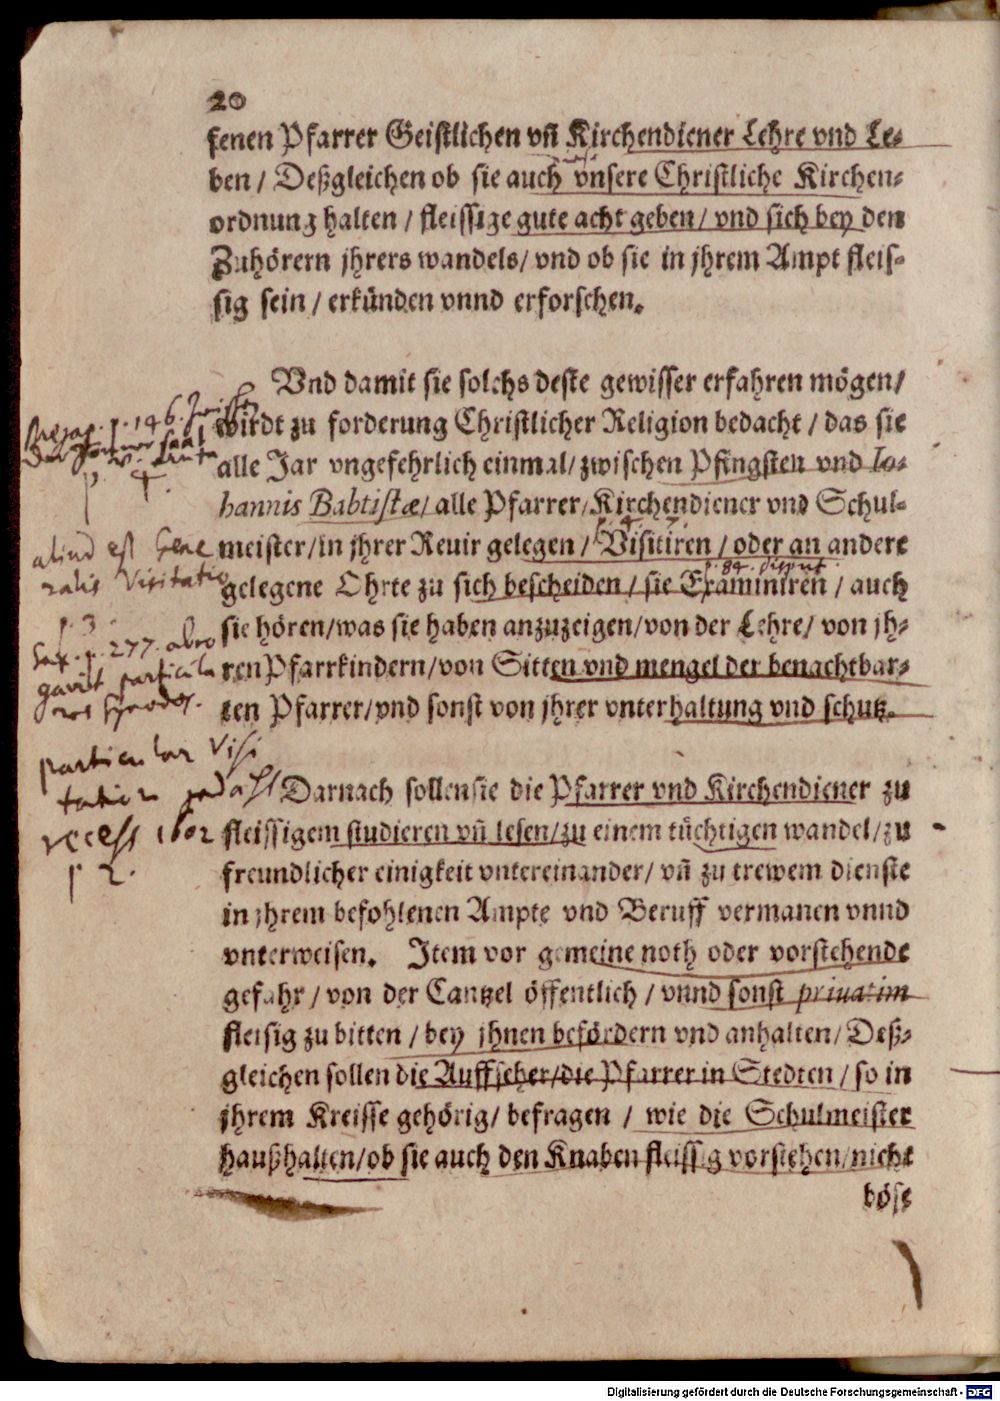 20
senen Pfarrer Geistlichen vñ Kirchendiener Lehre vnd Le-
ben / Deßgleichen ob sie auch vnsere Christliche Kirchen-
ordnung halten / fleissige gute acht geben / vnd sich bey den
Zuhörern jhrers wandels / vnd ob sie in jhrem Ampt fleis-
sig sein / erkünden vnnd erforschen.
Vnd damit sie solchs deste gewisser erfahren mögen /
wirdt zu forderung Christlicher Religion bedacht / das sie
alle Jar vngefehrlich einmal / zwischen Pfingsten vnd Io-
hannis Babtistæ / alle Pfarrer / Kirchendiener vnd Schul-
p. 4
aliud est Gene
meister / in jhrer Revir gelegen / Visitiren / oder an andere
ralis Visitatio
p. 84.
gelegene Ohrte zu sich bescheiden / sie Examiniren / auch
p. 3.
sie hören / was sie haben anzuzeigen / von der Lehre / von jh-
p. 277. abro
ren Pfarrkindern / von Sitten vnd mengel der benachtbar-
gavit particula
res Synodos.
ten Pfarrer / vnd sonst von jhrer vnterhaltung vnd schutz.
particular Visi
tation
Darnach sollen sie die Pfarrer vnd Kirchendiener zu
recess 1602
fleissigem studieren vñ lesen / zu einem tüchtigen wandel / zu
p 2.
freundlicher einigkeit vntereinander / vñ zu trewem dienste
in jhrem befohlenen Ampte vnd Beruff vermanen vnnd
vnterweisen. Item vor gemeine noth oder vorstehende
gefahr / von der Cantzel öffentlich / vnnd sonst priuatim
fleisig zu bitten / bey jhnen befördern vnd anhalten / Deß-
gleichen sollen die Auffseher / die Pfarrer in Stedten / so in
jhrem Kreisse gehörig / befragen / wie die Schulmeister
haußhalten / ob sie auch den Knaben fleissig vorstehen / nicht
böse
Digitalisierung gefördert durch die Deutsche Forschungsgemeinschaft - DFG